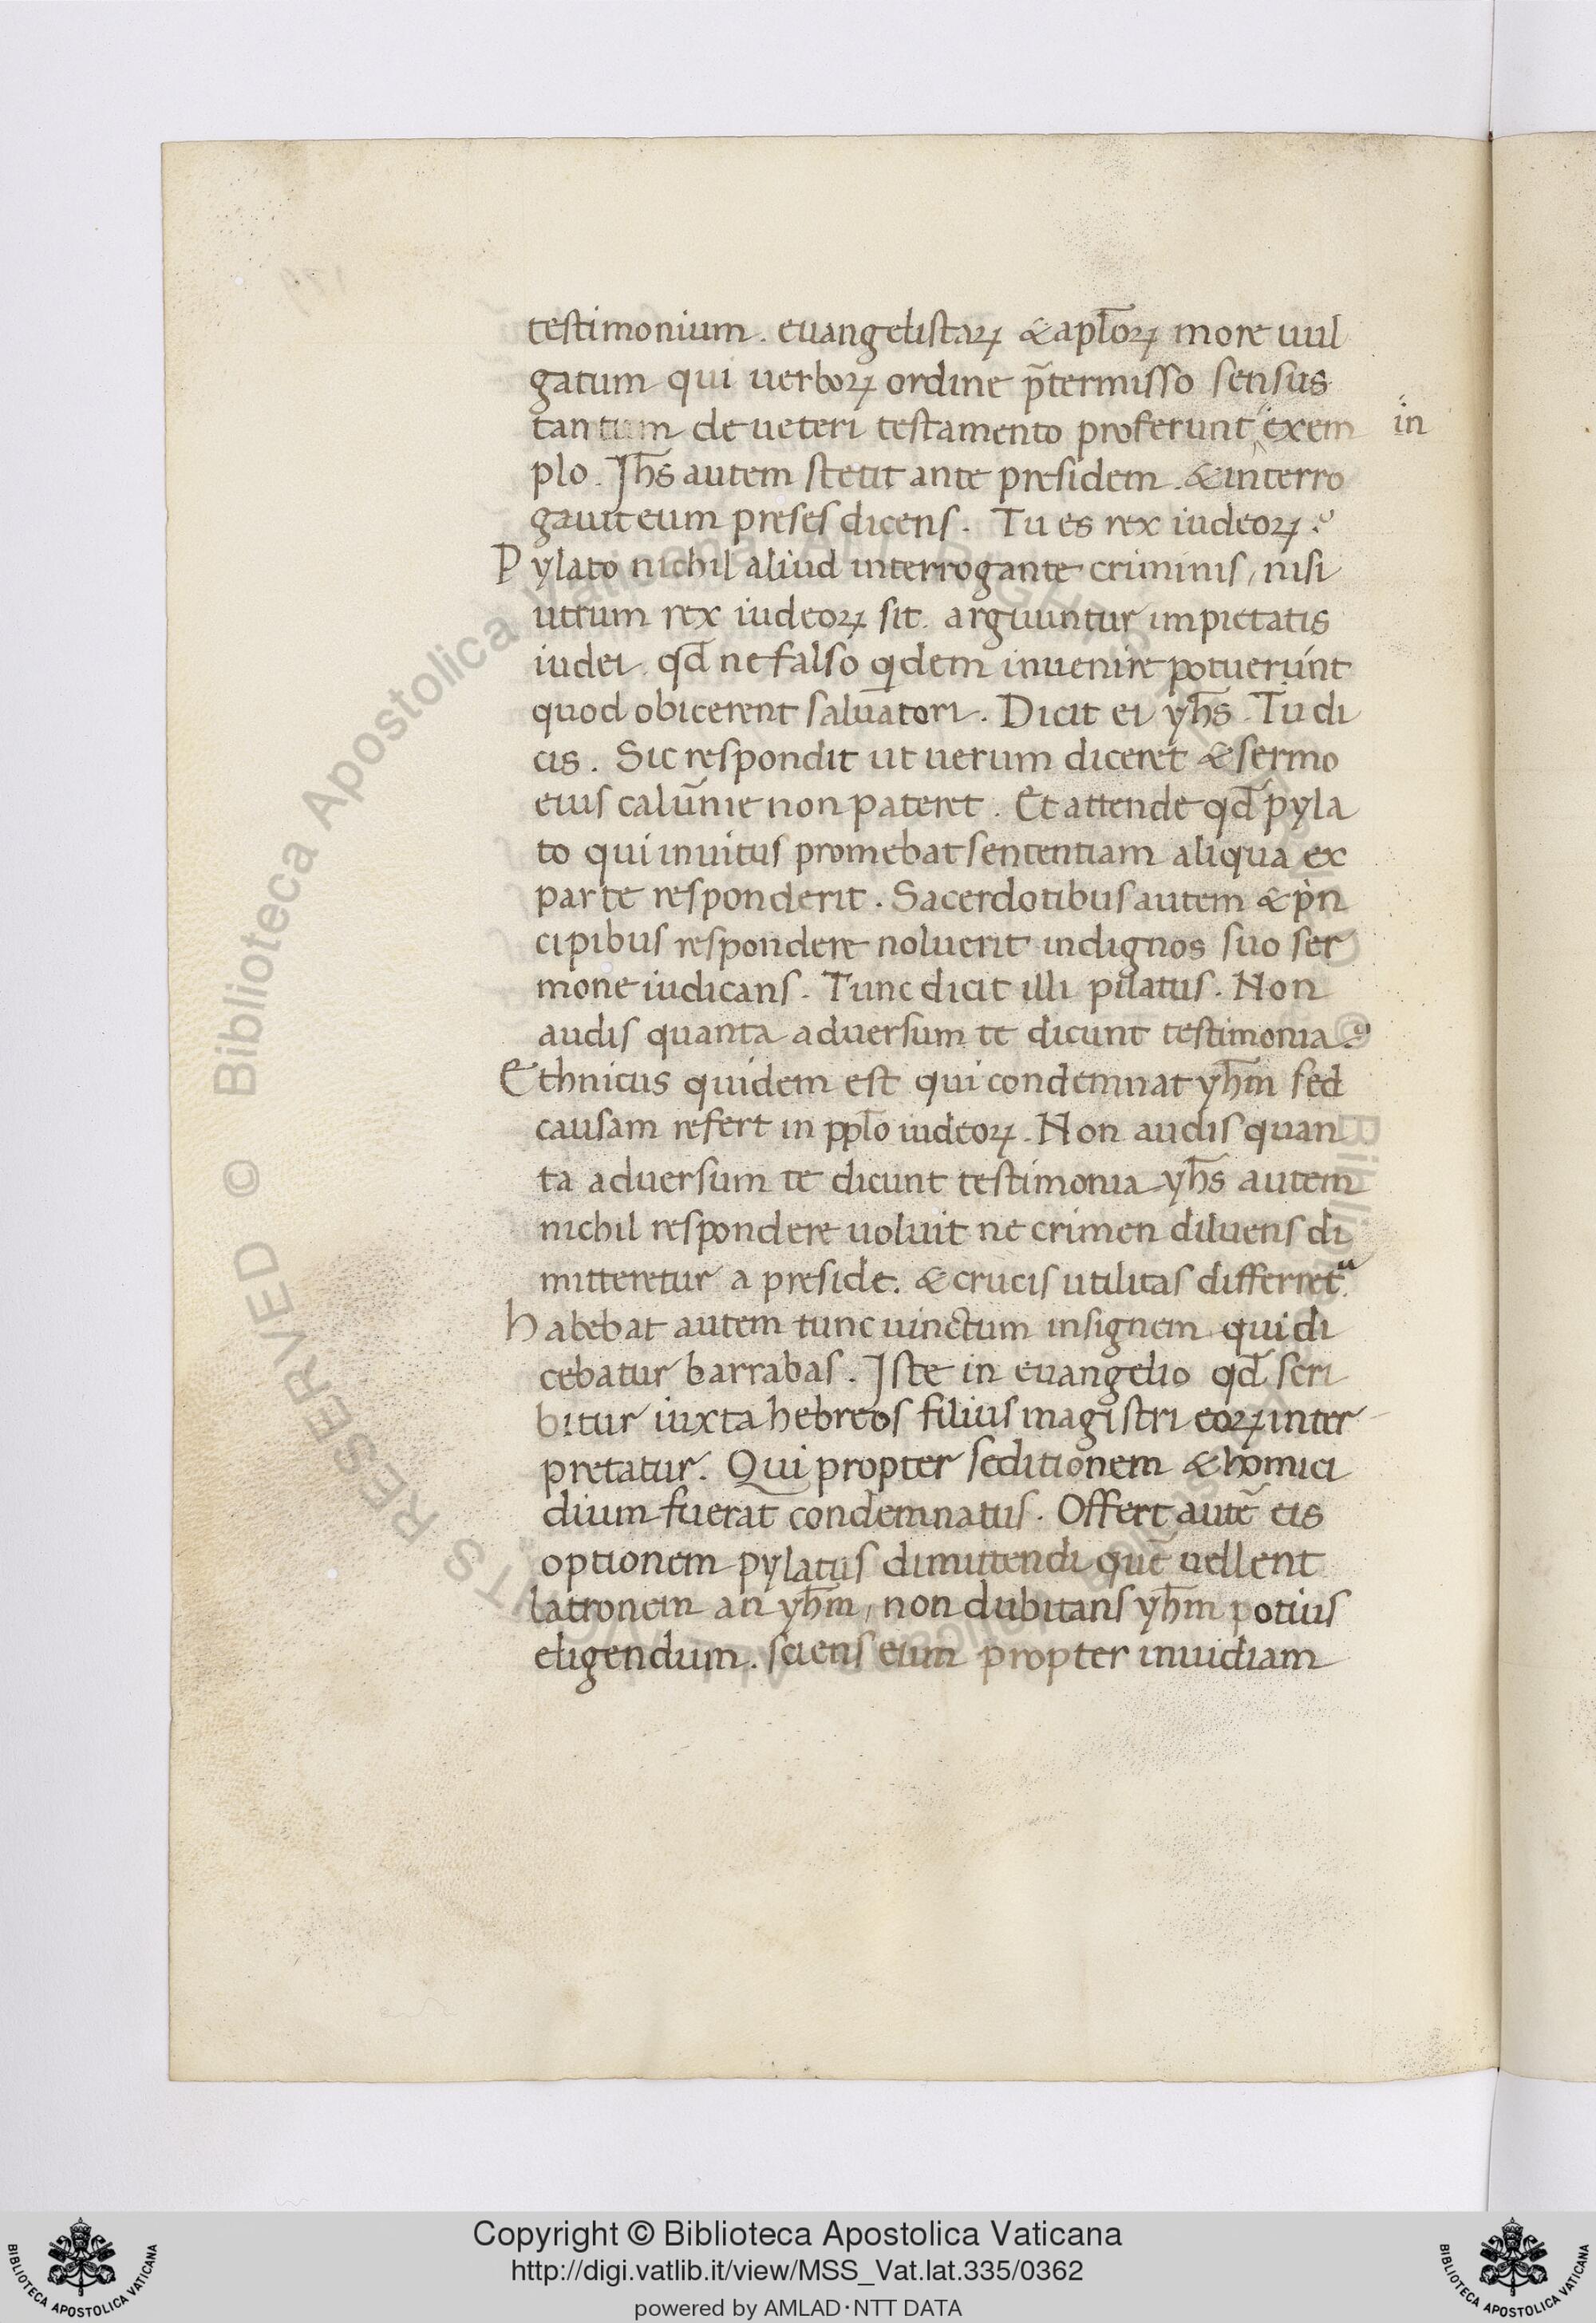 testimonium. euangelistaꝝ & apl̄oꝝ more uul
gatum qui uerboꝝ ordine p̄termisso sensus
tantum de ueteri testamento proferunt exem
in
plo. Jh̄s autem stetit ante presidem. & interro
gauit eum preses dicens. Tu es rex iudeoꝝ?
Pylato nichil aliud interrogante criminis, nisi
utrum rex iudeoꝝ sit. arguuntur impietatis
iudei. qd̄ ne falso qidem inuenire potuerunt
quod obicerent saluatori. Dicit ei yh̄s. Tu di
cis. Sic respondit ut uerum diceret & sermo
eius calūnie non pateret. Et attende qd̄ pyla
to qui inuitus promebat sententiam aliqua ex
parte responderit. Sacerdotibus autem & pͥn
cipibus respondere noluerit indignos suo ser
mone iudicans. Tunc dicit illi pilatus. Non
audis quanta aduersum te dicunt testimonia?
Ethnicus quidem est qui condemnat yh̄m sed
causam refert in ppl̄o iudeoꝝ. Non audis quan
ta aduersum te dicunt testimonia yh̄s autem
nichil respondere uoluit ne crimen diluens di
mitteretur a preside. & crucis utilitas differretᵘʳ.
Habebat autem tunc uinctum insignem qui di
cebatur barrabas. Iste in euangelio qd̄ scri
bitur iuxta hebreos filius magistri eoꝝ inter
pretatur. Qui propter seditionem & homici
dium fuerat condemnatus. Offert autē eis
optionem pylatus dimittendi quē uellent
latronem an yh̄m, non dubitans yh̄m potius
eligendum. sciens eum propter inuidiam
Biblioteca Apostolica Vaticana ALL RIGHTS RESERVED ©
Copyright © Biblioteca Apostolica Vaticana
http://digi.vatlib.it/view/MSS_Vat.lat.335/0362
powered by AMLAD·NTT DATA
BIBLIOTECA APOSTOLICA VATICANA
BIBLIOTECA APOSTOLICA VATICANA